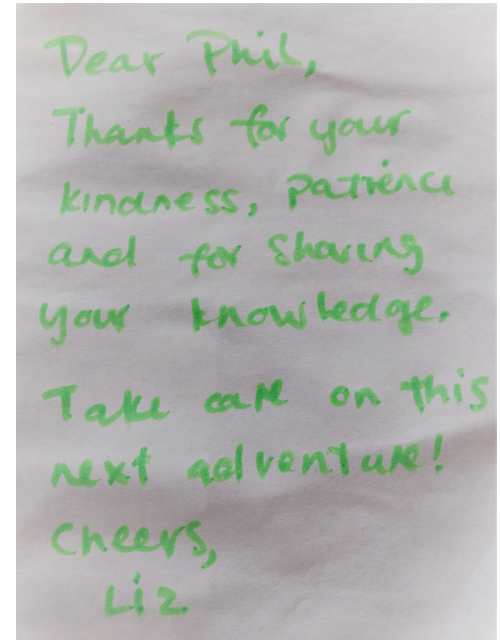 Dear Phil,
Thanks for your
kindness, patience
and for sharing
your knowledge.
Take care on this
next adventure!
Cheers,
Liz